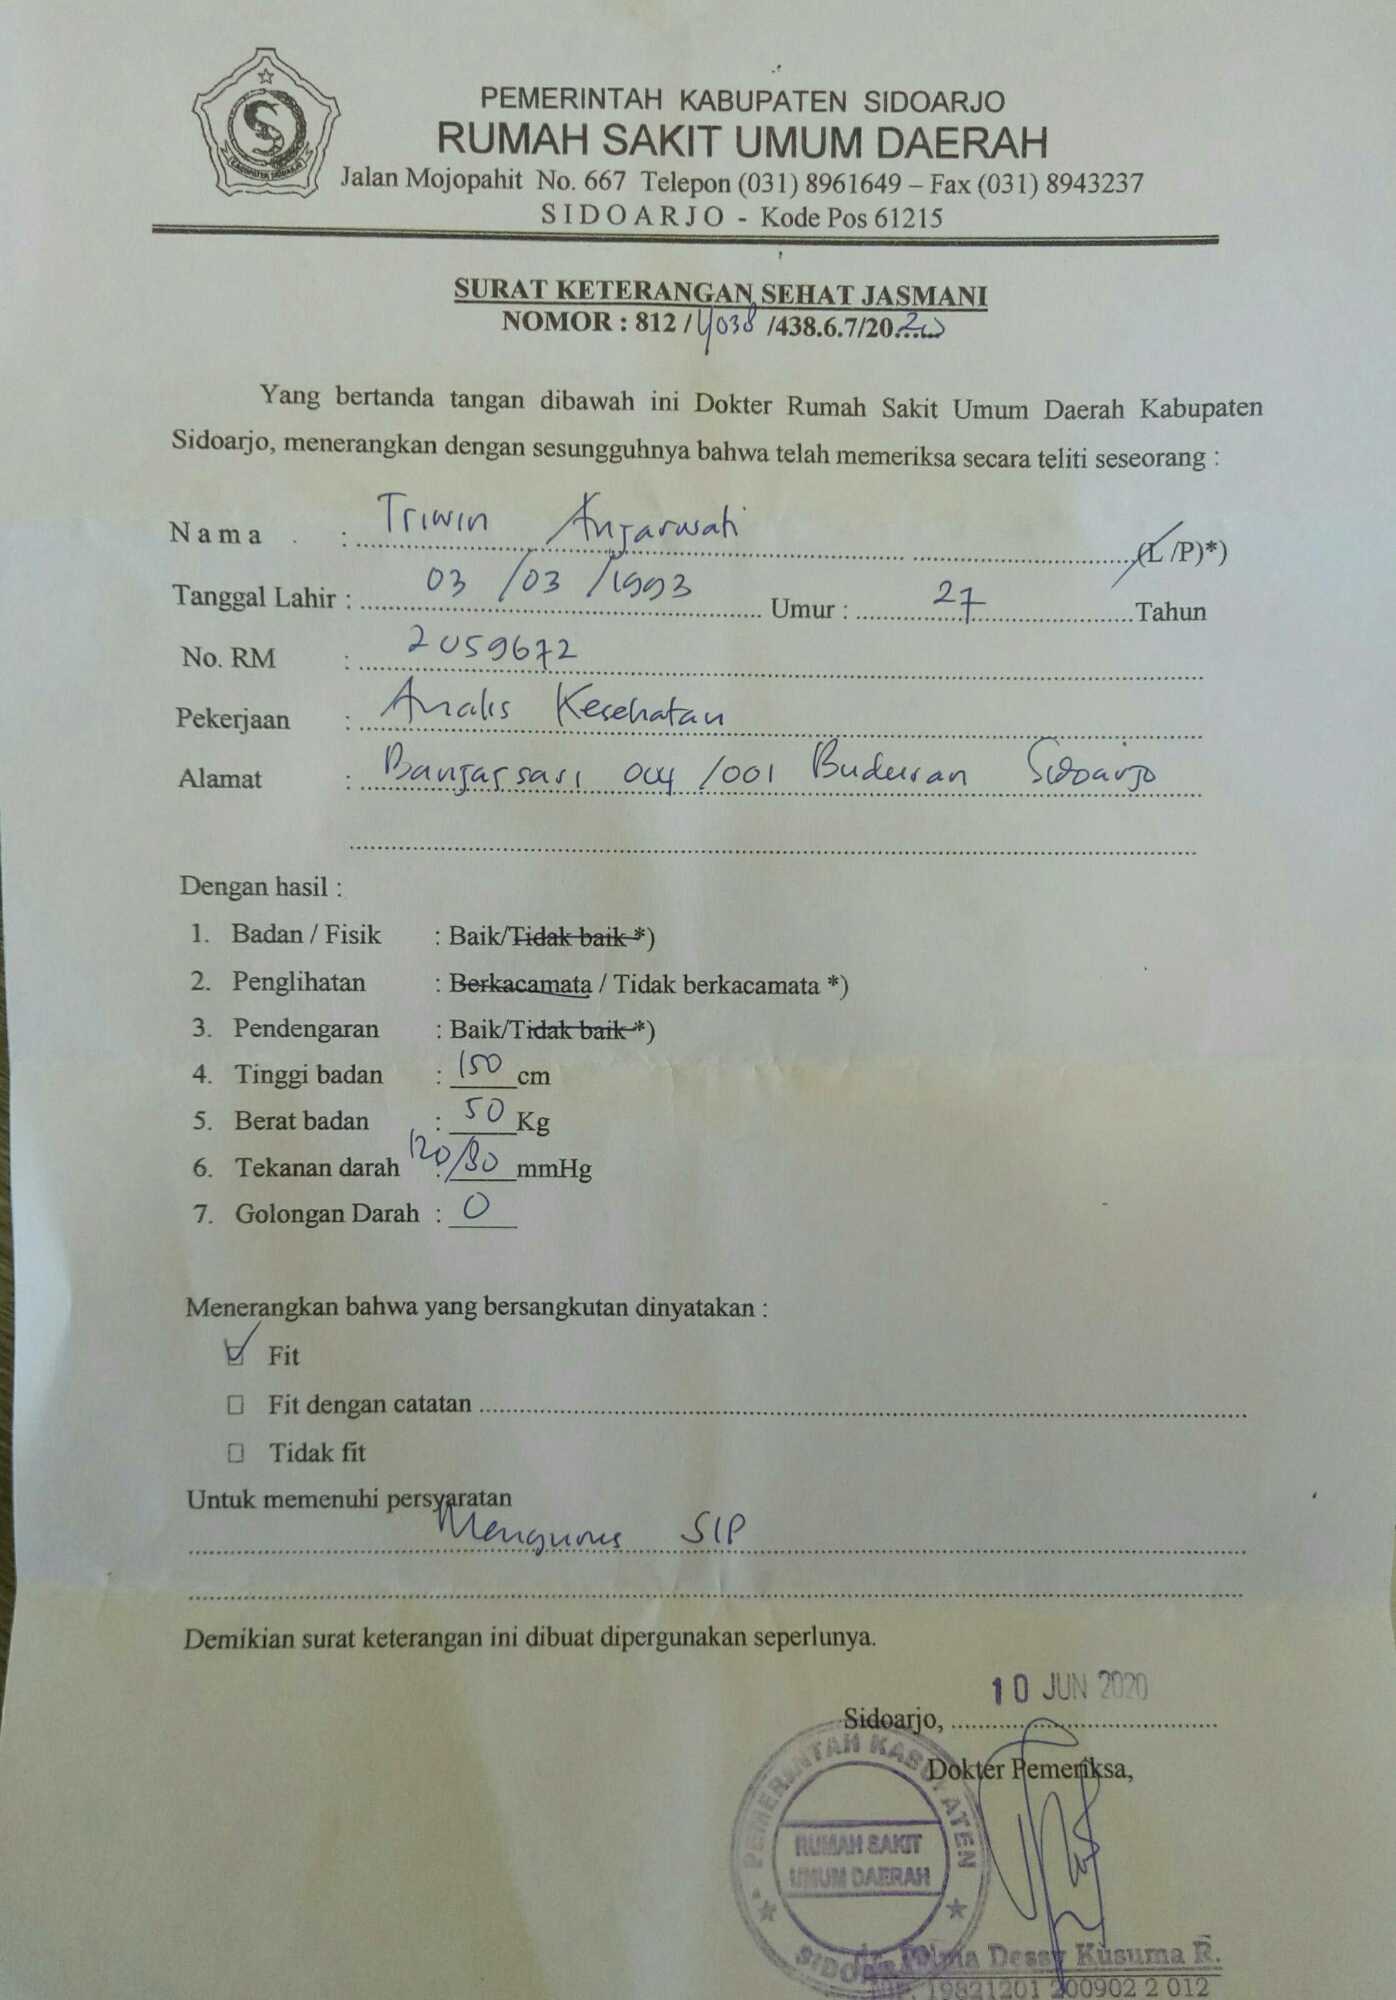 PEMERINTAH KABUPATEN SIDOARJO
RUMAH SAKIT UMUM DAERAH
Jalan Mojopahit No. 667 Telepon (031) 8961649 – Fax (031) 8943237
SIDOARJO - Kode Pos 61215
KABUPATEN SIDOARJO
SURAT KETERANGAN SEHAT JASMANI
NOMOR : 812 / 4038 /438.6.7/20 20
Yang bertanda tangan dibawah ini Dokter Rumah Sakit Umum Daerah Kabupaten
Sidoarjo, menerangkan dengan sesungguhnya bahwa telah memeriksa secara teliti seseorang :
Nama : Triwin Anjarwati (L /P)*)
Tanggal Lahir : 03 /03 /1993 Umur : 27 Tahun
No. RM : 2059672
Pekerjaan : Analis Kesehatan
Alamat : Banjarsari 004 /001 Buduran Sidoarjo
Dengan hasil :
1. Badan / Fisik : Baik/Tidak baik *)
2. Penglihatan : Berkacamata / Tidak berkacamata *)
3. Pendengaran : Baik/Tidak baik *)
4. Tinggi badan : 150 cm
5. Berat badan : 50 Kg
6. Tekanan darah : 120/80 mmHg
7. Golongan Darah : O
Menerangkan bahwa yang bersangkutan dinyatakan :
Fit
Fit dengan catatan
Tidak fit
Untuk memenuhi persyaratan
Mengurus SIP
Demikian surat keterangan ini dibuat dipergunakan seperlunya.
10 JUN 2020
Sidoarjo,
Dokter Pemeriksa,
PEMERINTAH KABUPATEN
RUMAH SAKIT
UMUM DAERAH
SIDOARJO
Dessy Kusuma R.
19821201 200902 2 012